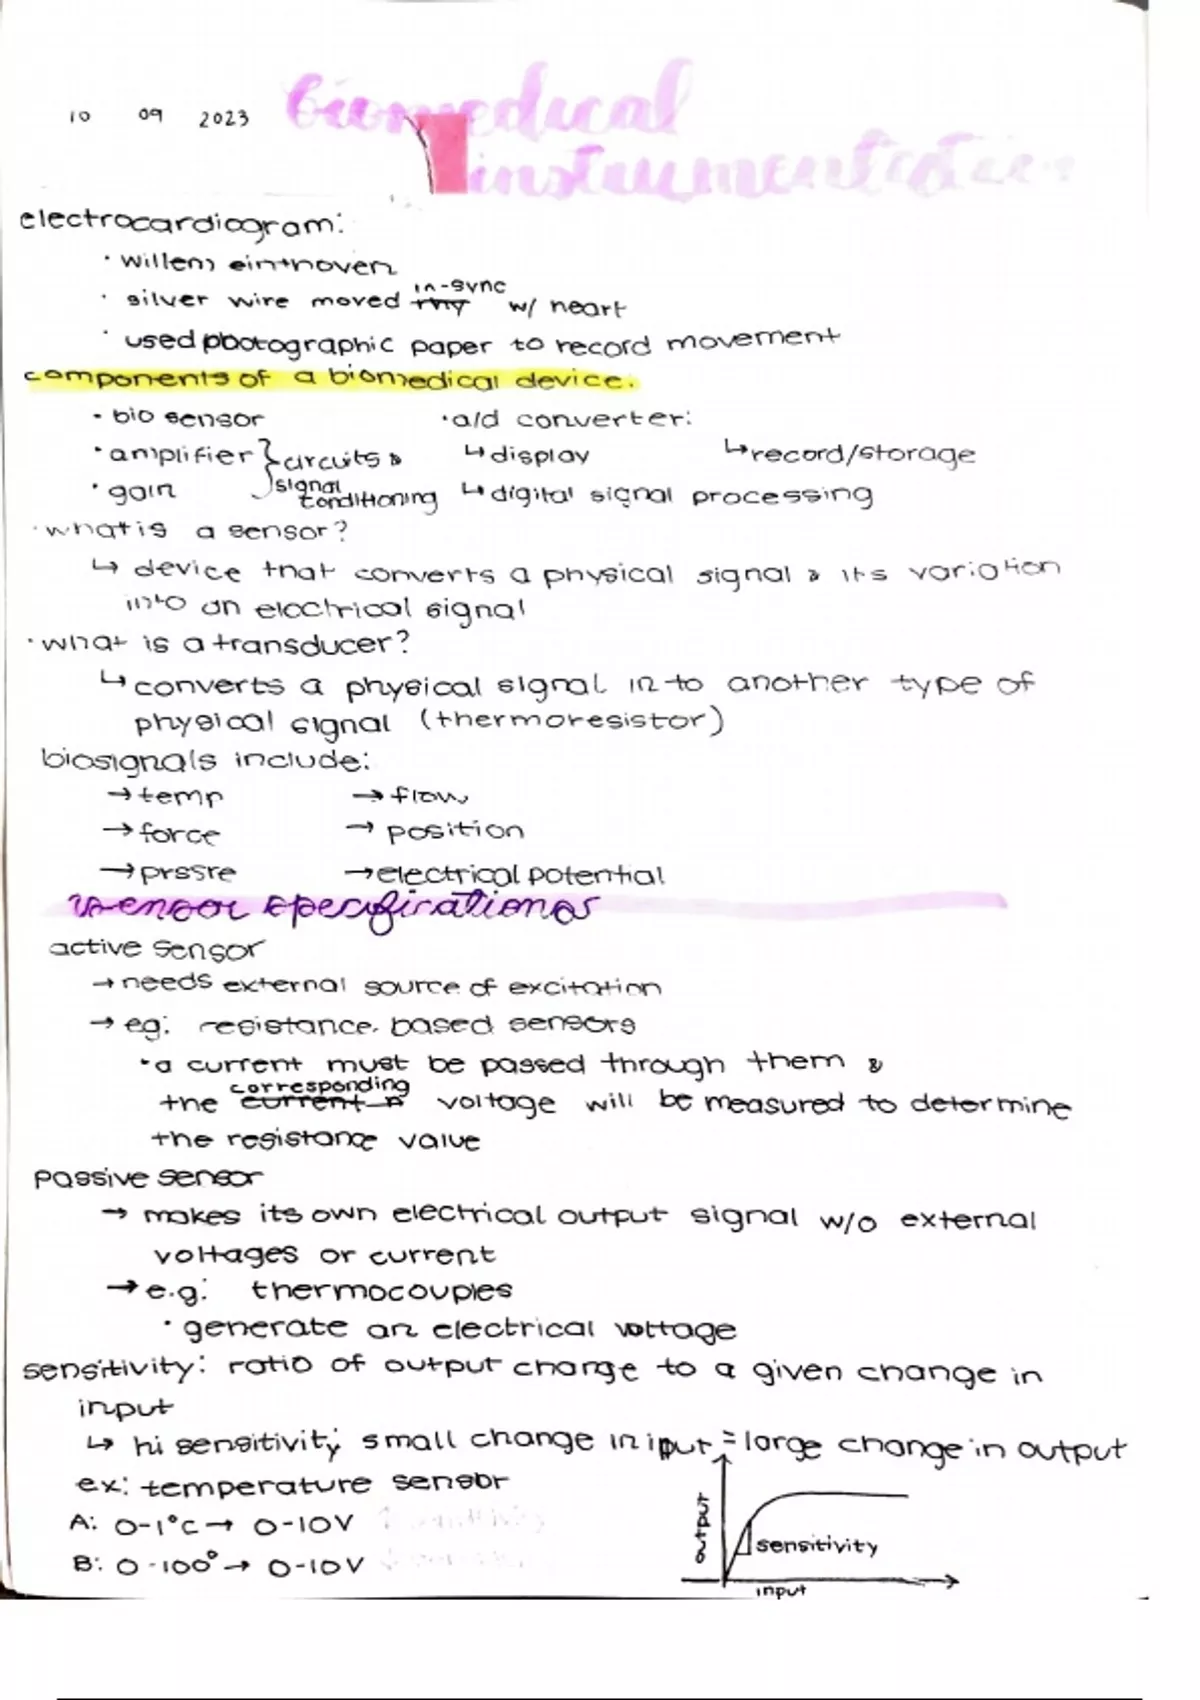 10 09 2023
biomedical
instrumentation
electrocardiogram:
· willem einthoven
· silver wire moved in-sync w/ heart
· used photographic paper to record movement
components of a biomedical device:
· bio sensor ·a/d converter:
· amplifier } circuits & ↳display ↳record/storage
· gain signal conditioning ↳digital signal processing
·what is a sensor?
↳ device that converts a physical signal & its variation
into an electrical signal
·what is a transducer?
↳converts a physical signal in to another type of
physical signal (thermoresistor)
biosignals include:
→temp →flow
→force → position
→prssre →electrical potential
sensor specifications
active sensor
→needs external source of excitation
→ eg: resistance.based sensors
·a current must be passed through them &
the corresponding voltage will be measured to determine
the resistance value
passive sensor
→ makes its own electrical output signal w/o external
voltages or current
→e.g: thermocouples
· generate an electrical voltage
sensitivity: ratio of output change to a given change in
input
↳ hi sensitivity; small change in input = large change in output
ex: temperature sensor
A: 0-1°C→ 0-10V
B: 0-100°→ 0-10V
output
sensitivity
input